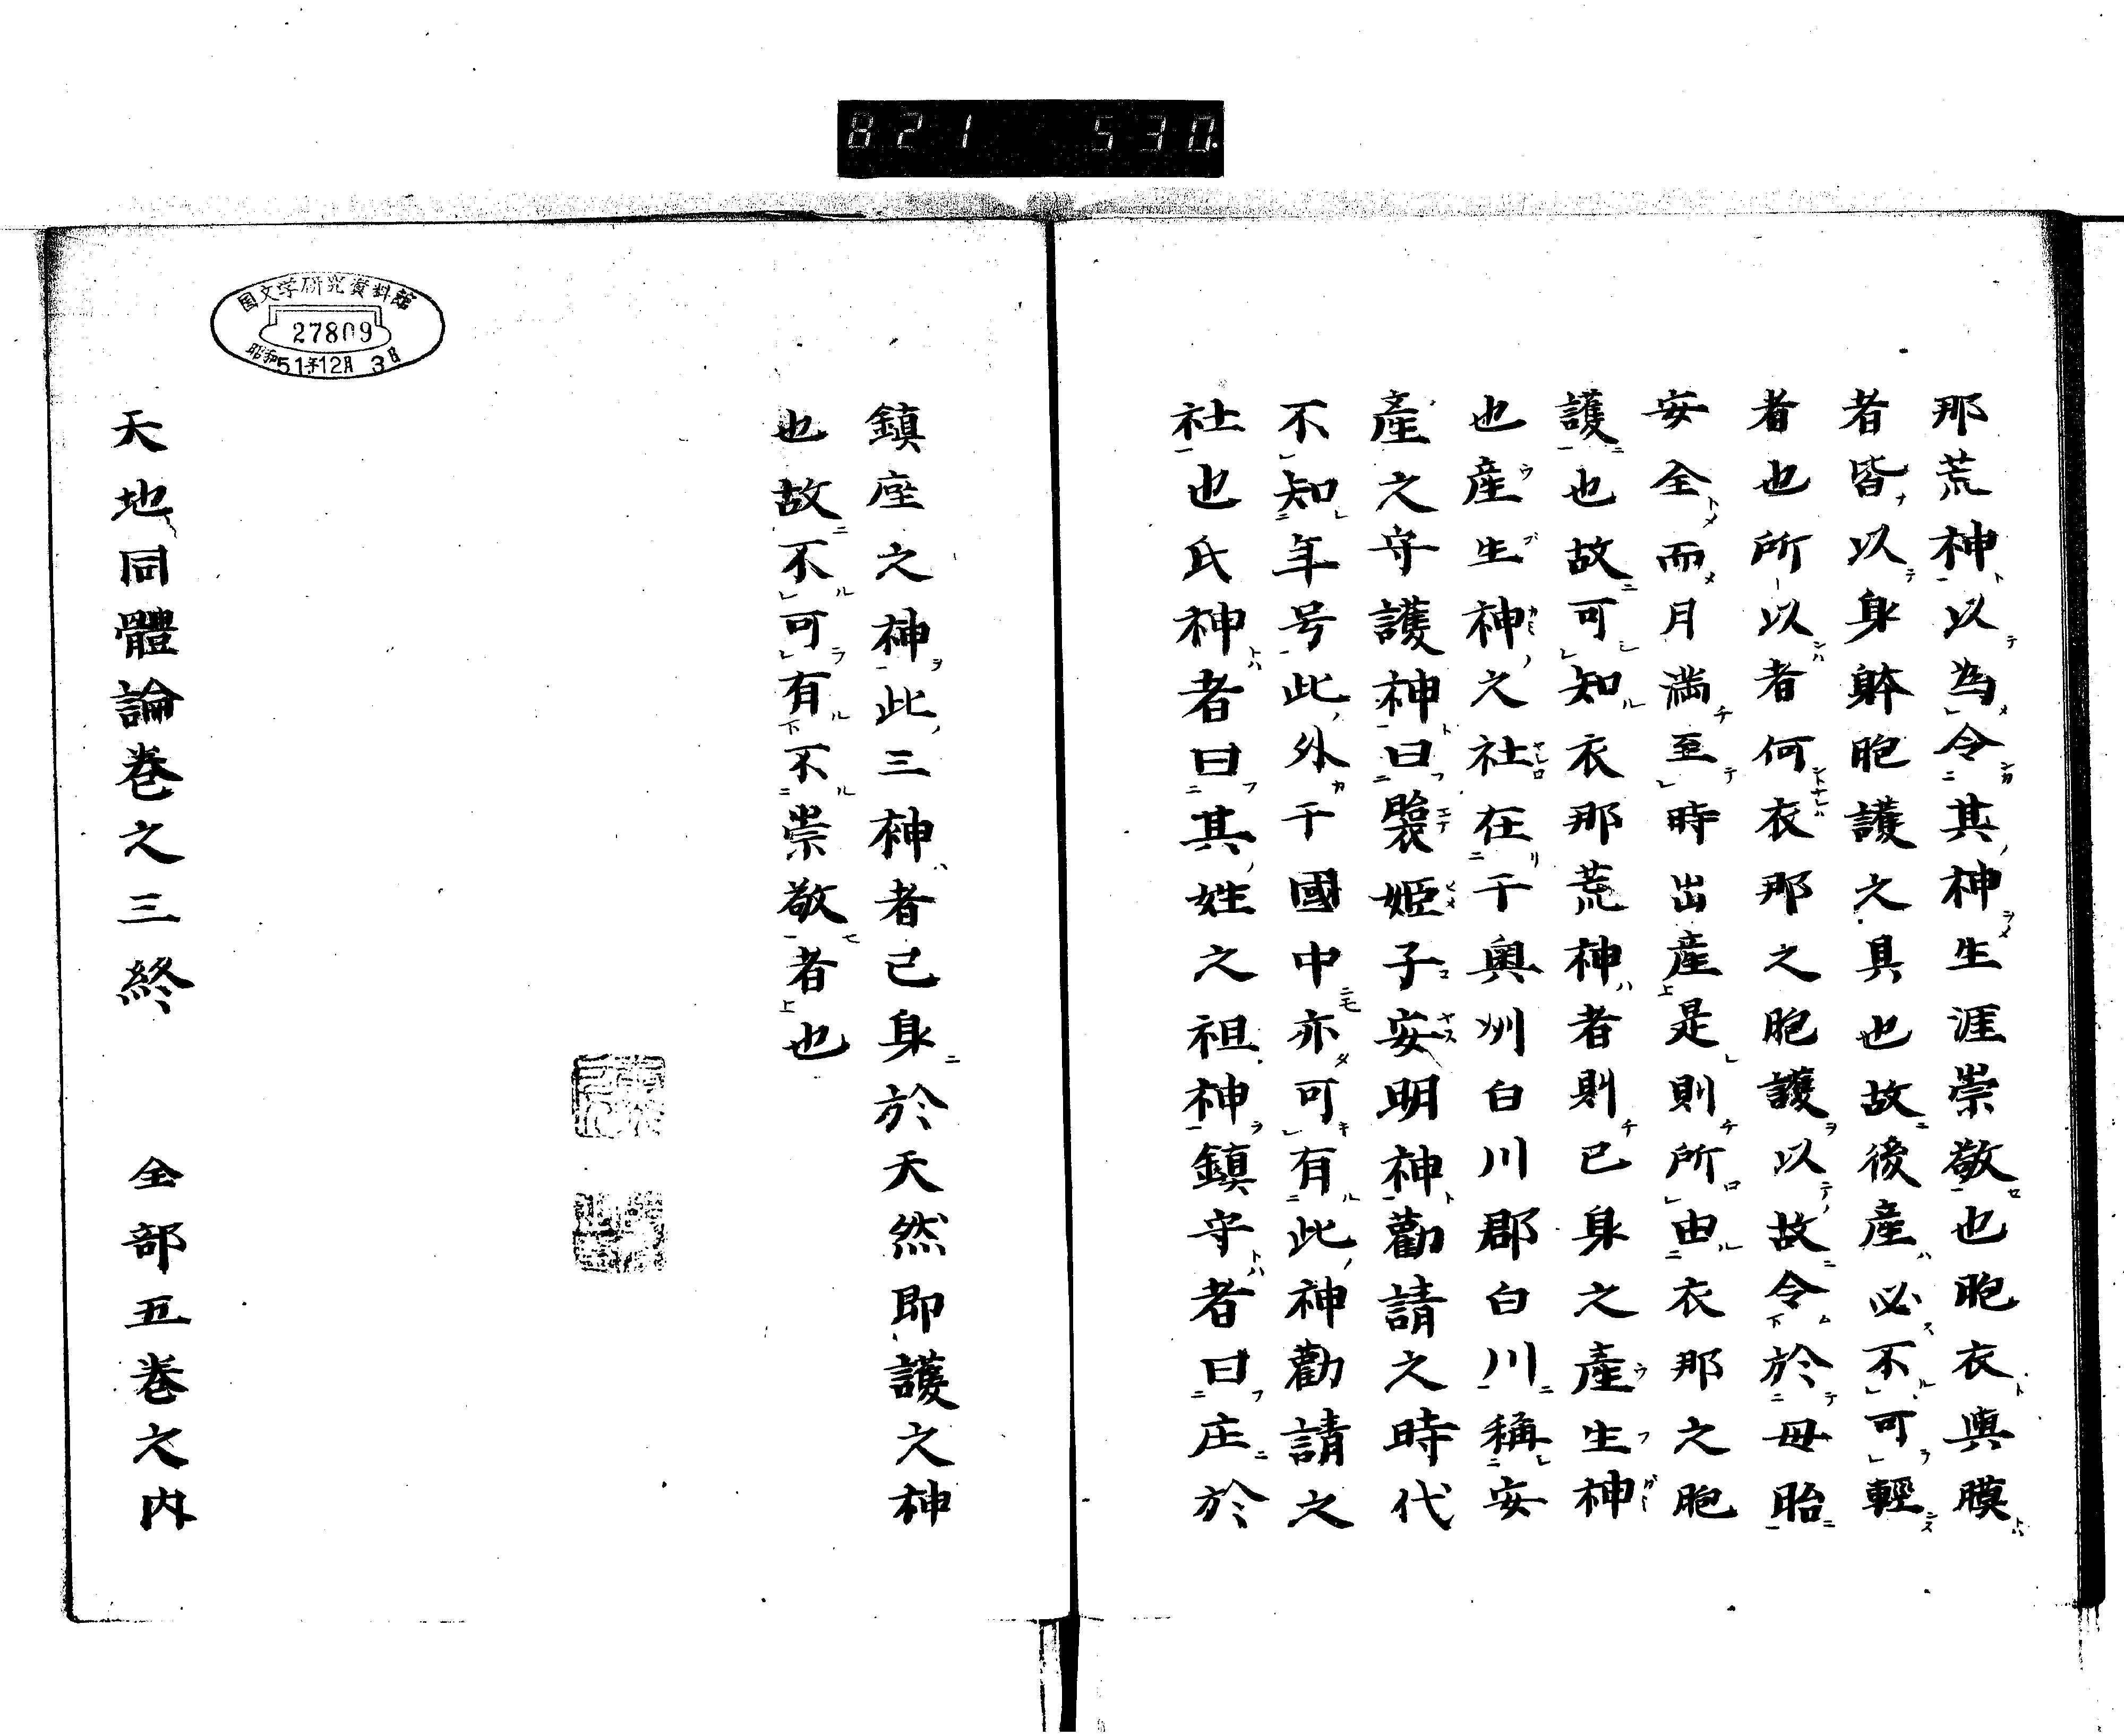 821 530.
那荒神以為令其神生涯崇敬也胞衣與膜
者皆以身躰胞護之具也故後産必不可輕
者也所以者何衣那之胞護以故令於母胎
安全而月満至時出産是則所由衣那之胞
護也故可知衣那荒神者則已身之産生神
也産生神之社在于奥州白川郡白川稱安
産之守護神曰褹姫子安明神勸請之時代
不知年号此外干國中亦可有此神勸請之
社也氏神者曰其姓之祖神鎮守者曰庄於
鎮座之神此三神者己身於天然即護之神
也故不可有不崇敬者也
天地同體論巻之三終 全部五巻之内
国文学研究資料館
27809
昭和51年12月3日